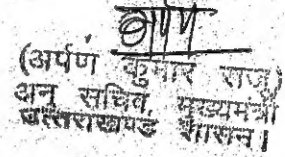 (अर्पण कुमार राजू)
अनु सचिव, मुख्यमंत्री
उत्तराखण्ड शासन।